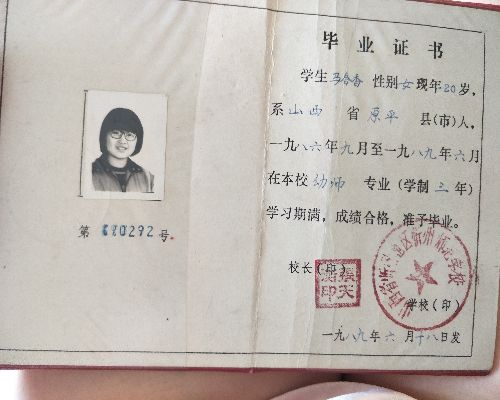 毕业证书
学生 马会香 性别 女 现年 20 岁，
系 山西 省 原平 县（市）人，
一九八六年九月至一九八九年六月
在本校 幼师 专业（学制 三 年）
学习期满，成绩合格，准予毕业。
校长（印）
学校（印）
一九八九年六月十八日发
第 680292 号